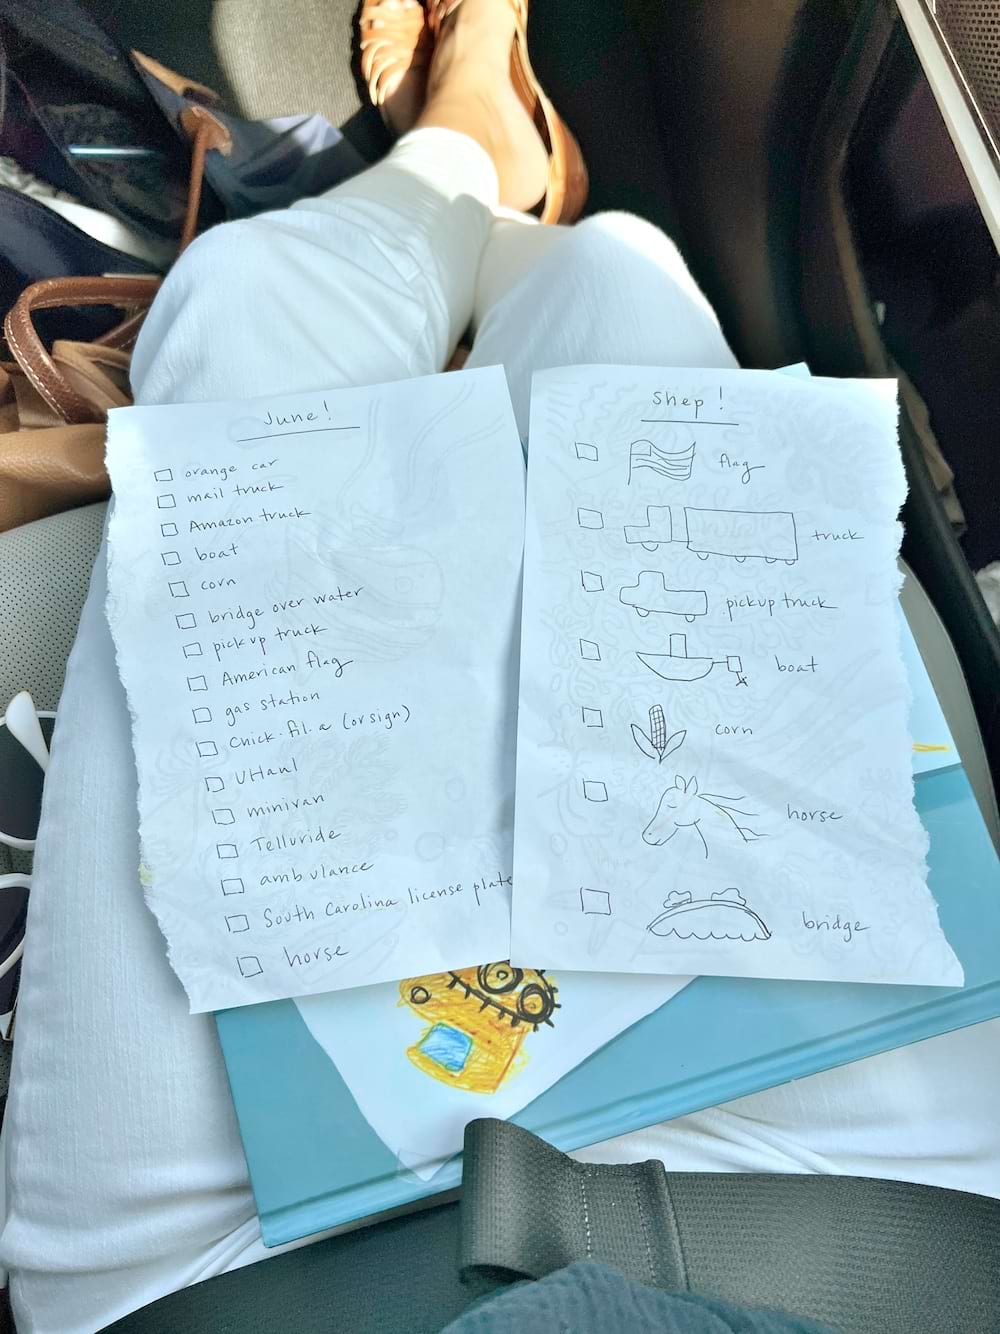 June!
orange car
mail truck
Amazon truck
boat
corn
bridge over water
pickup truck
American flag
gas station
Chick.fil.a (or sign)
UHaul
minivan
Telluride
ambulance
South Carolina license plate
horse
Shep!
flag
truck
pickup truck
boat
corn
horse
bridge